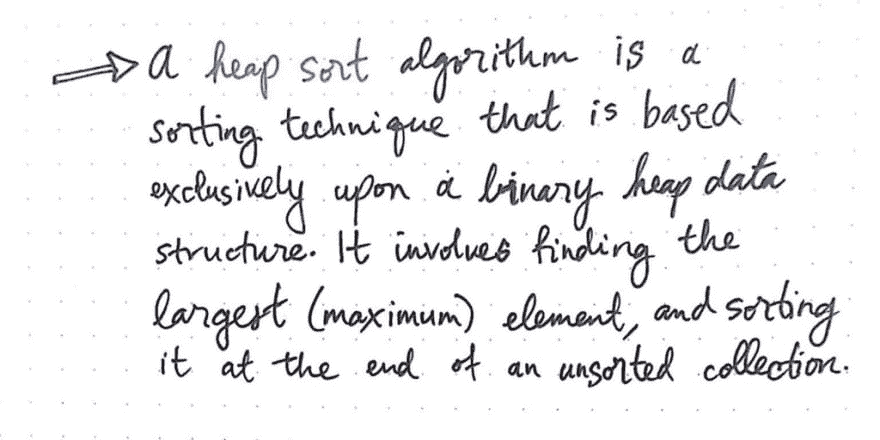 ⇒ a heap sort algorithm is a
sorting technique that is based
exclusively upon a binary heap data
structure. It involves finding the
largest (maximum) element, and sorting
it at the end of an unsorted collection.